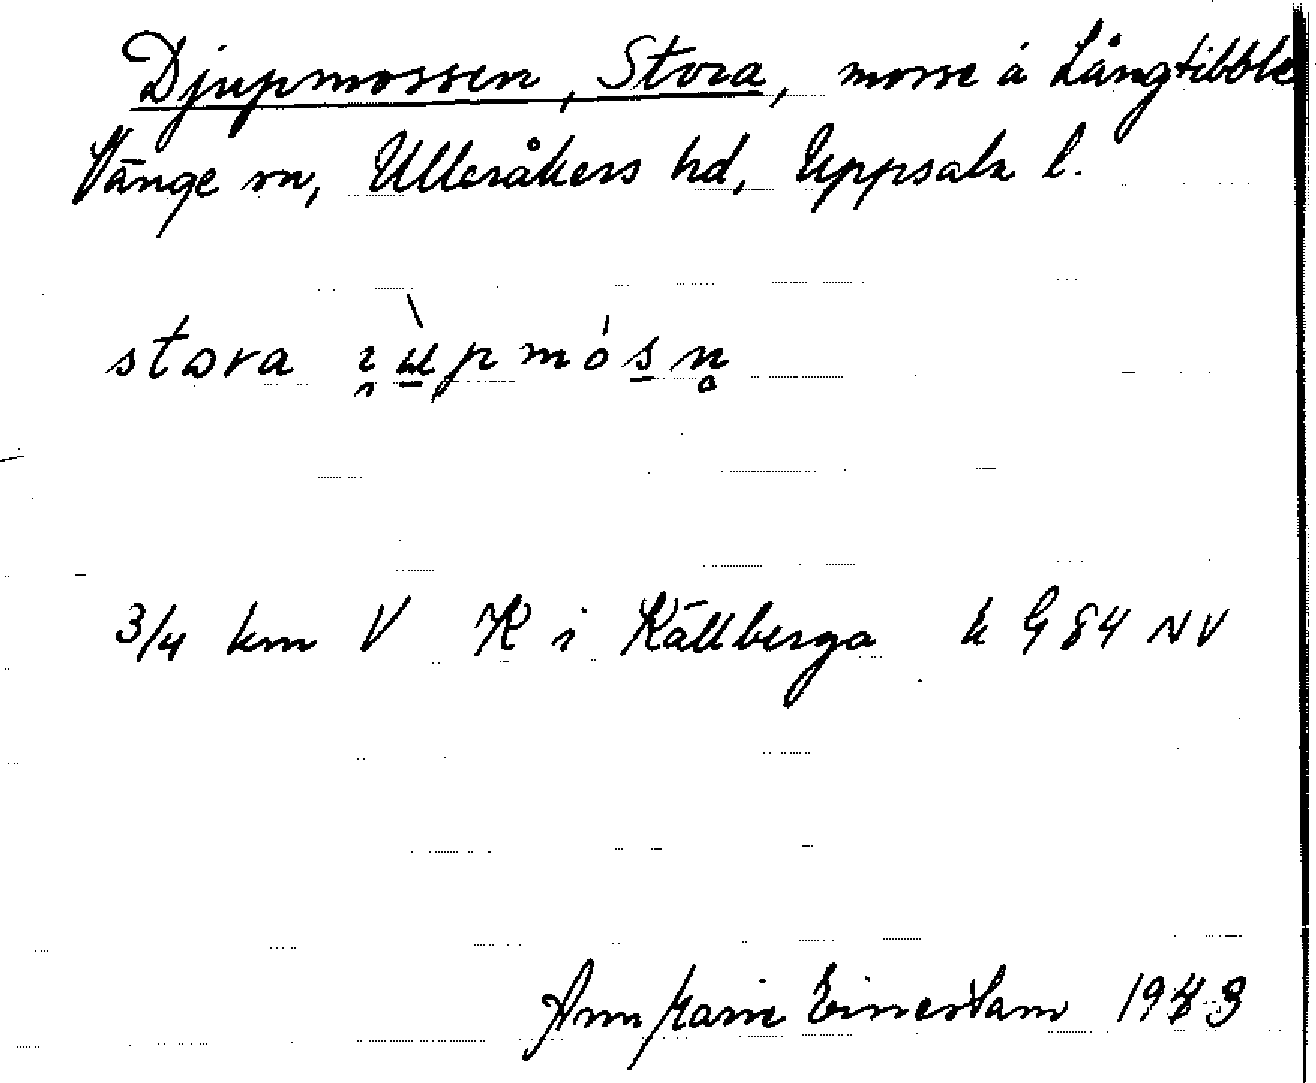 Djupmossen, Stora, mosse å Långtibble
Vänge sn, Ulleråkers hd, Uppsala l.
stora
3/4 km V K i Källberga k G 84 NV
Ann Marie Einerstam